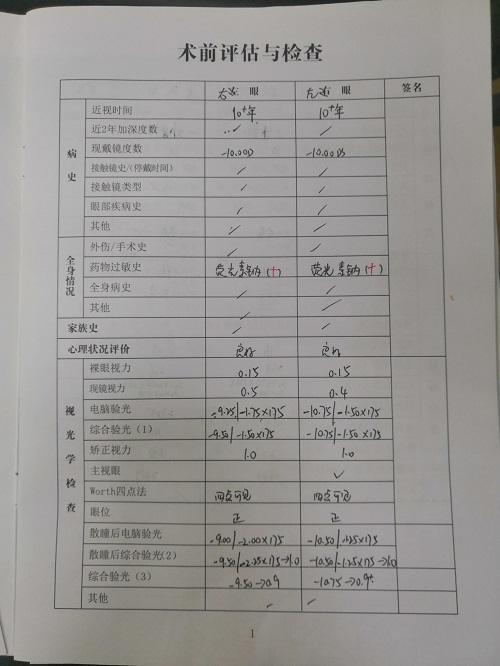 术前评估与检查
右 眼 左 眼 签名
病史
近视时间 10⁺年 10⁺年
近2年加深度数 / /
现戴镜度数 -10.00D -10.00DS
接触镜史/(停戴时间) / /
接触镜类型 / /
眼部疾病史 / /
其他 / /
全身情况
外伤/手术史 / /
药物过敏史 荧光素钠(+) 荧光素钠(+)
全身病史 / /
其他 / /
家族史 / /
心理状况评价 良好 良好
视光学检查
裸眼视力 0.15 0.15
现镜视力 0.5 0.4
电脑验光 -9.25/-1.75×175 -10.75/-1.50×175
综合验光(1) -9.50/-1.50×175 -10.75/-1.50×175
矫正视力 1.0 1.0
主视眼 ✓
Worth四点法 四点可见 四点可见
眼位 正 正
散瞳后电脑验光 -9.00/-2.00×175 -10.50/ ×175
散瞳后综合验光(2) -9.50/-2.25×175→1.0 -10.50/-1.25×175→1.0
综合验光(3) -9.50→0.9 -10.75→0.9⁺
其他 / /
1